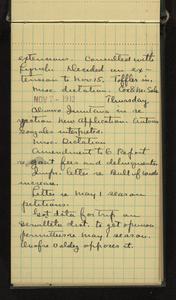 extensions. Consulted with
Lynch. Decided on ex-
tension to Nov. 15. Toffler in.
Misc. dictation. Cox & Mr. Sale
NOV 2 - 1913 Thursday
in re
gestion New Application. Antonio
Gonzales interpreted.
Misc. Dictation
Amendment to G Report
re grant fees and delinquents.
letter re Bull of Woods
increase.
Letter re May 1 season
petitions.
Got data for trip on
to get opinions
permittees re May 1 season.
Valdez opposes it.